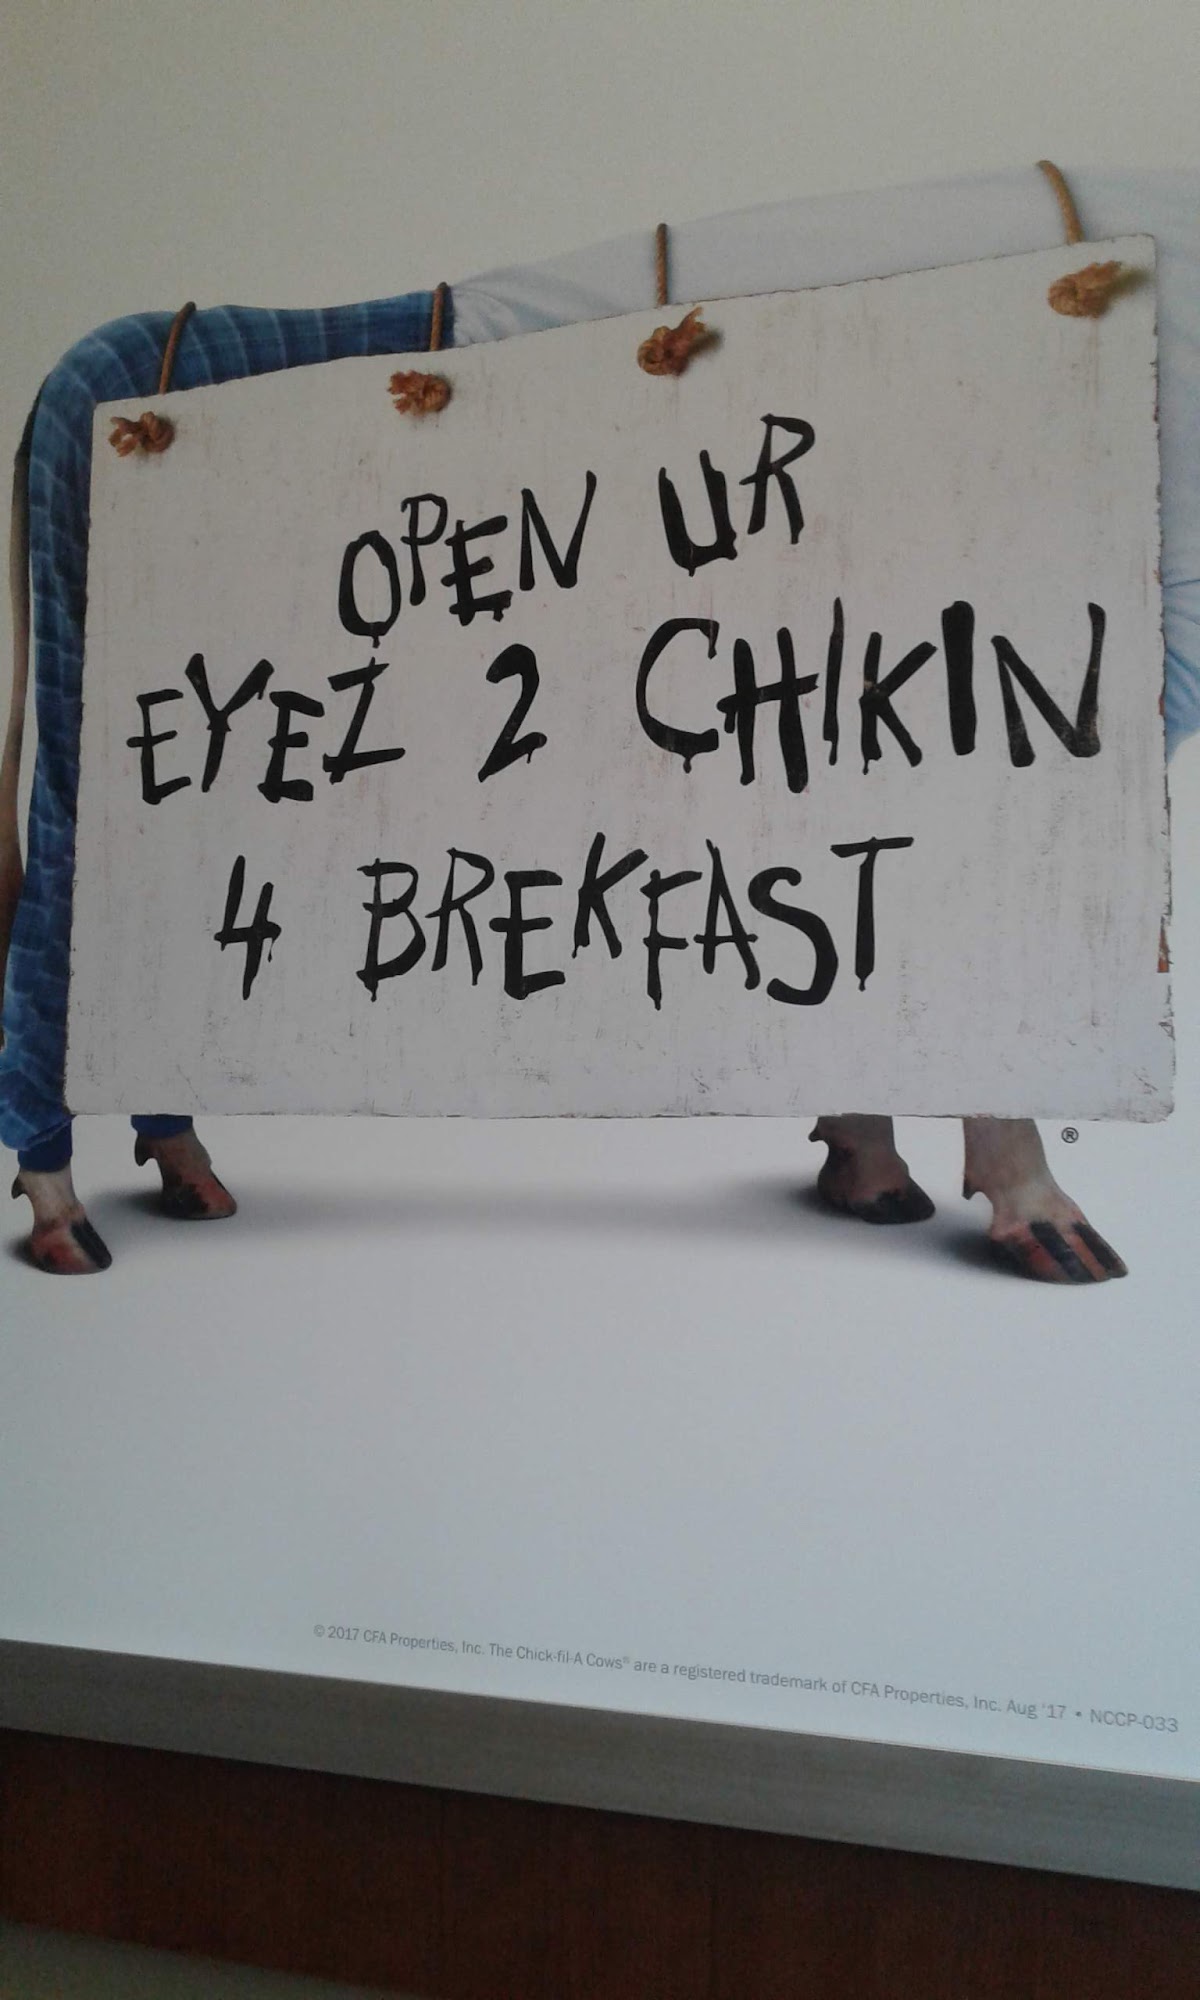 OPEN UR
EYEZ 2 CHIKIN
4 BREKFAST
®
© 2017 CFA Properties, Inc. The Chick-fil-A Cows® are a registered trademark of CFA Properties, Inc. Aug '17 • NCCP-033